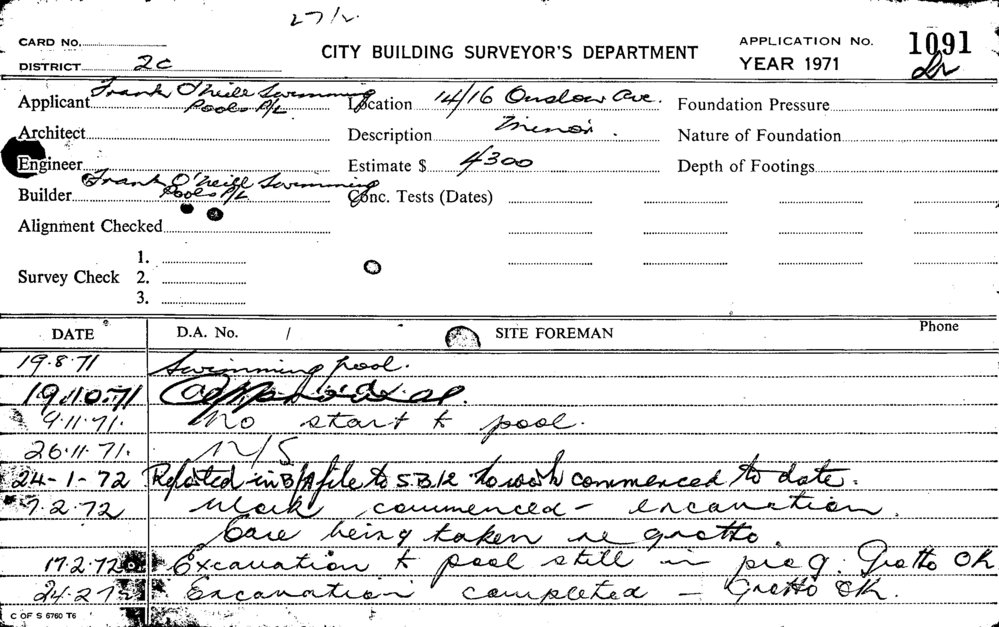 27/2.
CARD No.
CITY BUILDING SURVEYOR'S DEPARTMENT
APPLICATION No. 1091
DISTRICT 2c
YEAR 1971
Applicant Frank O'Neill Swimming Pools P/L
Location 14/16 Onslow Ave.
Foundation Pressure
Architect
Description Minor.
Nature of Foundation
Engineer
Estimate $ 4300
Depth of Footings
Builder Frank O'Neill Swimming Pools P/L
Conc. Tests (Dates)
Alignment Checked
Survey Check 1.
2.
3.
DATE D.A. No. / SITE FOREMAN Phone
19.8.71 Swimming pool.
19.10.71 Approval.
9.11.71. No start to pool.
26.11.71. N/S
24-1-72 Reported in B/A file to S.B.12 No work commenced to date.
7.2.72 Work commenced - excavation.
Care being taken re grotto.
17.2.72 Excavation to pool still in prog. Grotto OK
24.2.72 Excavation completed - Grotto OK.
C OF S 6760 T6